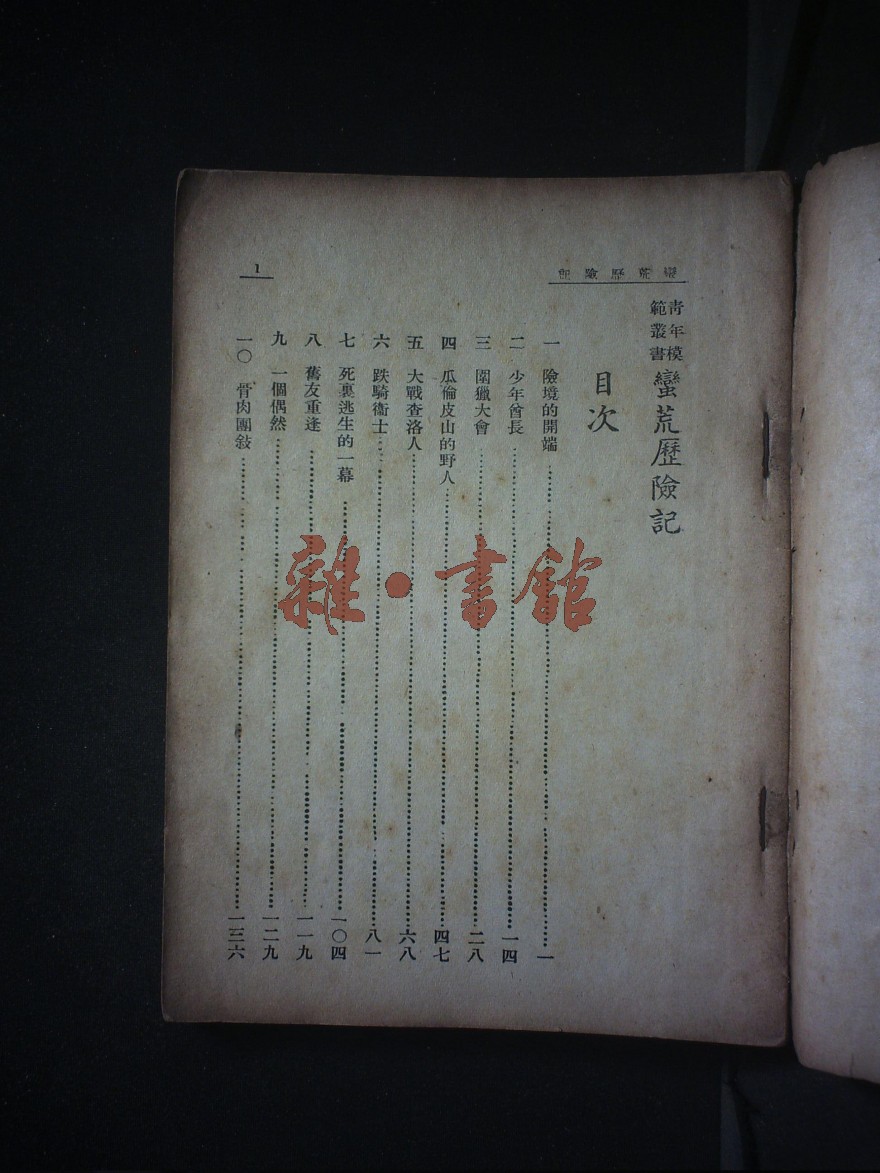 蠻荒歷險記
1
青年模範叢書
蠻荒歷險記
目次
一 險境的開端 一
二 少年酋長 一四
三 圍獵大會 二八
四 瓜倫皮山的野人 四七
五 大戰查洛人 六八
六 跌騎衞士 八一
七 死裏逃生的一幕 一〇四
八 舊友重逢 一一九
九 一個偶然 一二九
一〇 骨肉團敍 一三六
雜·書館